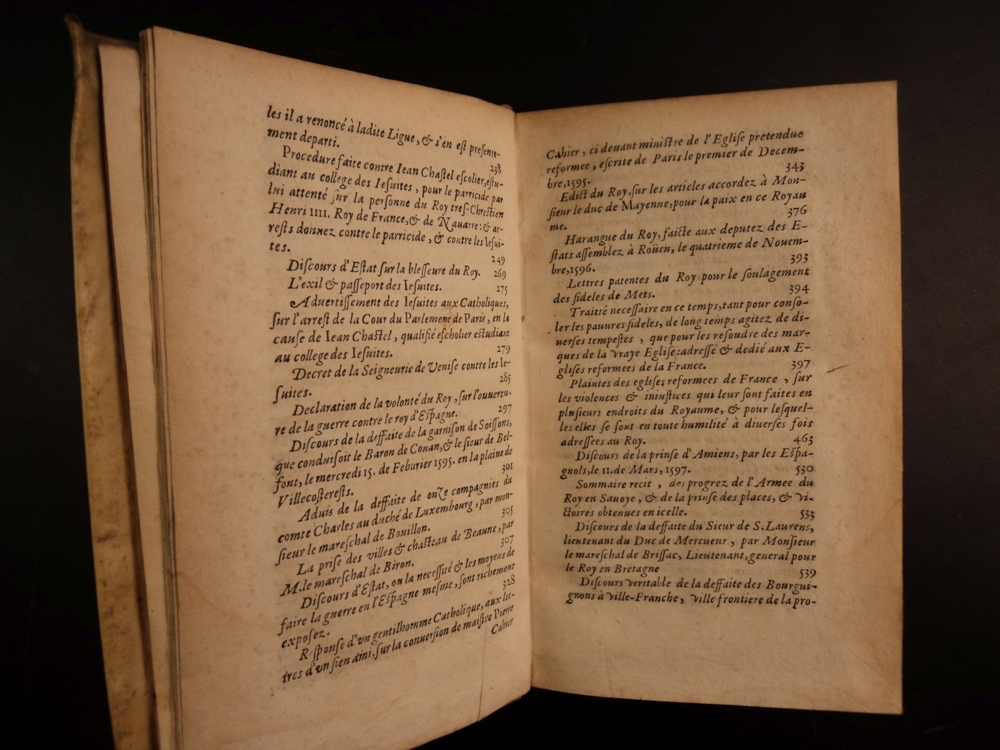 les il a renoncé à ladite Ligue, & s'en est presente-
ment departi.
258
Procedure faite contre Iean Chastel escolier, estu-
diant au college des Iesuites, pour le parricide par
lui attenté sur la personne du Roy tres-Chrestien
Henri IIII. Roy de France, & de Nauarre: & ar-
rests donnez contre le parricide, & contre les Iesui-
tes.
249
Discours d'Estat sur la blesseure du Roy. 269
L'exil & passeport des Iesuites. 275
Aduertissement des Iesuites aux Catholiques,
sur l'arrest de la Cour du Parlement de Paris, en la
cause de Iean Chastel, qualifié escholier estudiant
au college des Iesuites. 279
Decret de la Seigneurie de Venise contre les Ie-
suites. 285
Declaration de la volonté du Roy, sur l'ouuertu-
re de la guerre contre le roy d'Espagne. 297
Discours de la deffaite de la garnison de Soissons,
que conduisoit le Baron de Conan, & le sieur de Bel-
font, le mercredi 15. de Februrier 1595. en la plaine de
Villecosterests. 301
Aduis de la deffaite de onze compagnies du
comte Charles au duché de Luxembourg, par mon-
sieur le mareschal de Bouillon. 305
La prise des villes & chasteau de Beaune, par
M. le mareschal de Biron. 307
Discours d'Estat, ou la necessité & les moyens de
faire la guerre en l'Espagne mesme, sont richement
exposez. 328
Response d'vn gentilhomme Catholique, aux let-
tres d'vn sien ami, sur la conuersion de maistre Pierre
Cahier
Cahier, ci deuant ministre de l'Eglise pretendue
reformee, escrite de Paris le premier de Decem-
bre, 1595. 343
Edict du Roy, sur les articles accordez à Mon-
sieur le duc de Mayenne, pour la paix en ce Royau
me. 376
Harangue du Roy, faicte aux deputez des E-
stats assemblez à Roüen, le quatrieme de Nouem-
bre, 1596. 393
Lettres patentes du Roy pour le soulagement
des fideles de Mets. 394
Traitté necessaire en ce temps, tant pour conso-
ler les pauures fideles, de long temps agitez de di-
uerses tempestes, que pour les resoudre des mar-
ques de la vraye Eglise: adressé & dedié aux E-
glises reformees de la France. 397
Plaintes des eglises reformees de France, sur
les violences & iniustices qui leur sont faites en
plusieurs endroits du Royaume, & pour lesquel-
les elles se sont en toute humilité à diuerses fois
adressees au Roy. 463
Discours de la prinse d'Amiens, par les Espa-
gnols, le 11. de Mars, 1597. 530
Sommaire recit, des progrez de l'Armee du
Roy en Sauoye, & de la prinse des places, & vi-
ctoires obtenues en icelle. 533
Discours de la deffaite du Sieur de S. Laurens,
lieutenant du Duc de Mercueur, par Monsieur
le mareschal de Brissac, Lieutenant, general pour
le Roy en Bretagne 539
Discours veritable de la deffaite des Bourgui-
gnons à ville-Franche, ville frontiere de la pro-